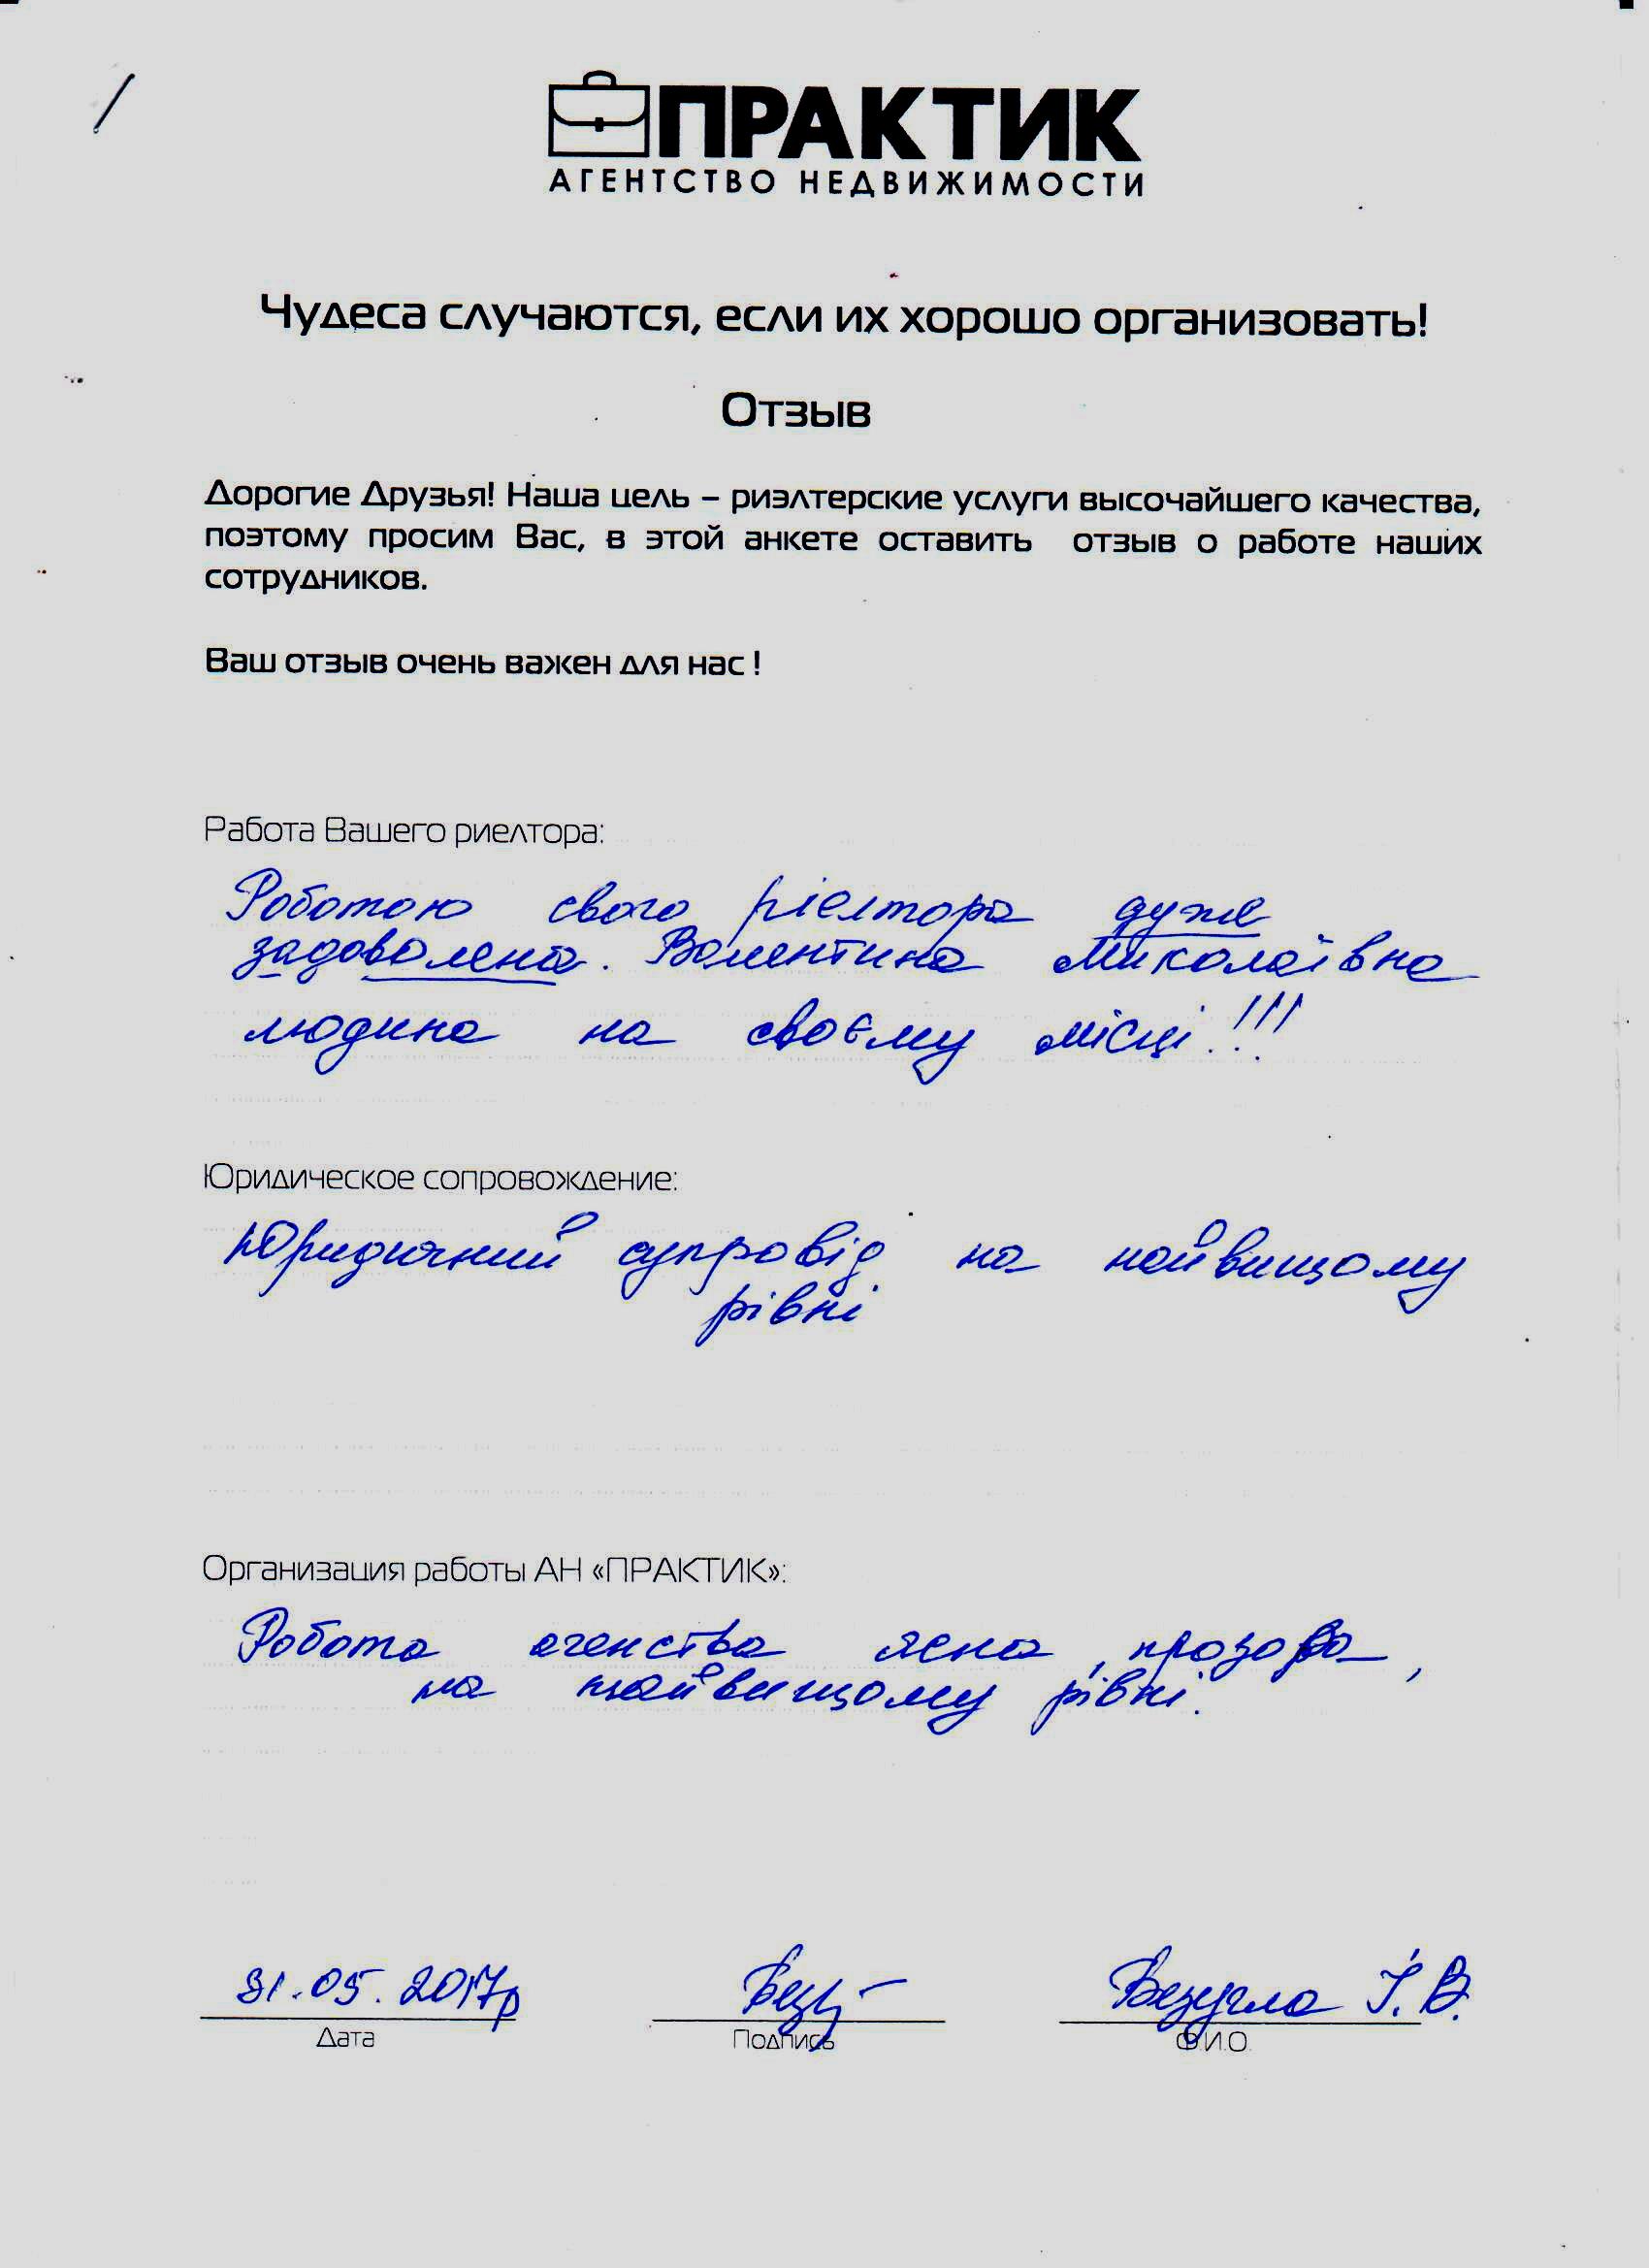 ПРАКТИК
АГЕНТСТВО НЕДВИЖИМОСТИ
Чудеса случаются, если их хорошо организовать!
Отзыв
Дорогие Друзья! Наша цель – риэлтерские услуги высочайшего качества,
поэтому просим Вас, в этой анкете оставить отзыв о работе наших
сотрудников.
Ваш отзыв очень важен для нас !
Работа Вашего риелтора:
Роботою свого ріелтора дуже
задоволена. Валентина Миколаївна
людина на своєму місці!!!
Юридическое сопровождение:
Юридичний супровід на найвищому
рівні
Организация работы АН «ПРАКТИК»:
Робота агенства ясна, прозора,
на найвищому рівні.
31.05.2017р Безугла І.В.
Дата Подпись Ф.И.О.